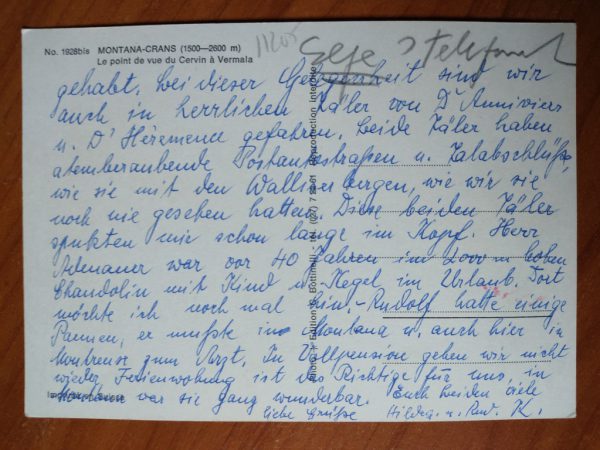 No. 1928bis MONTANA-CRANS (1500—2600 m)
Le point de vue du Cervin à Vermala
11205
gehabt. Bei dieser Gelegenheit sind wir
auch in herrlichen Täler von D'Anniviers
u. D'Héremence gefahren. Beide Täler haben
atemberaubende Postautostraßen u. Talabschlüße,
wie sie mit den Walliserbergen, wie wir sie
noch nie gesehen hatten. Diese beiden Täler
spukten mir schon lange im Kopf. Herr
Adenauer war vor 40 Jahren im 2000 m hohen
Chandolin mit Kind u. Kegel im Urlaub. Dort
möchte ich noch mal hin. - Rudolf hatte einige
Pannen, er mußte in Montana u. auch hier in
Montreux zum Arzt. In Vollpension gehen wir nicht
wieder, Ferienwohnung ist das Richtige für uns, in
Montana war sie ganz wunderbar. Euch beiden viele
liebe Grüße Hildeg. u. Rud. K.
Reproduction interdite